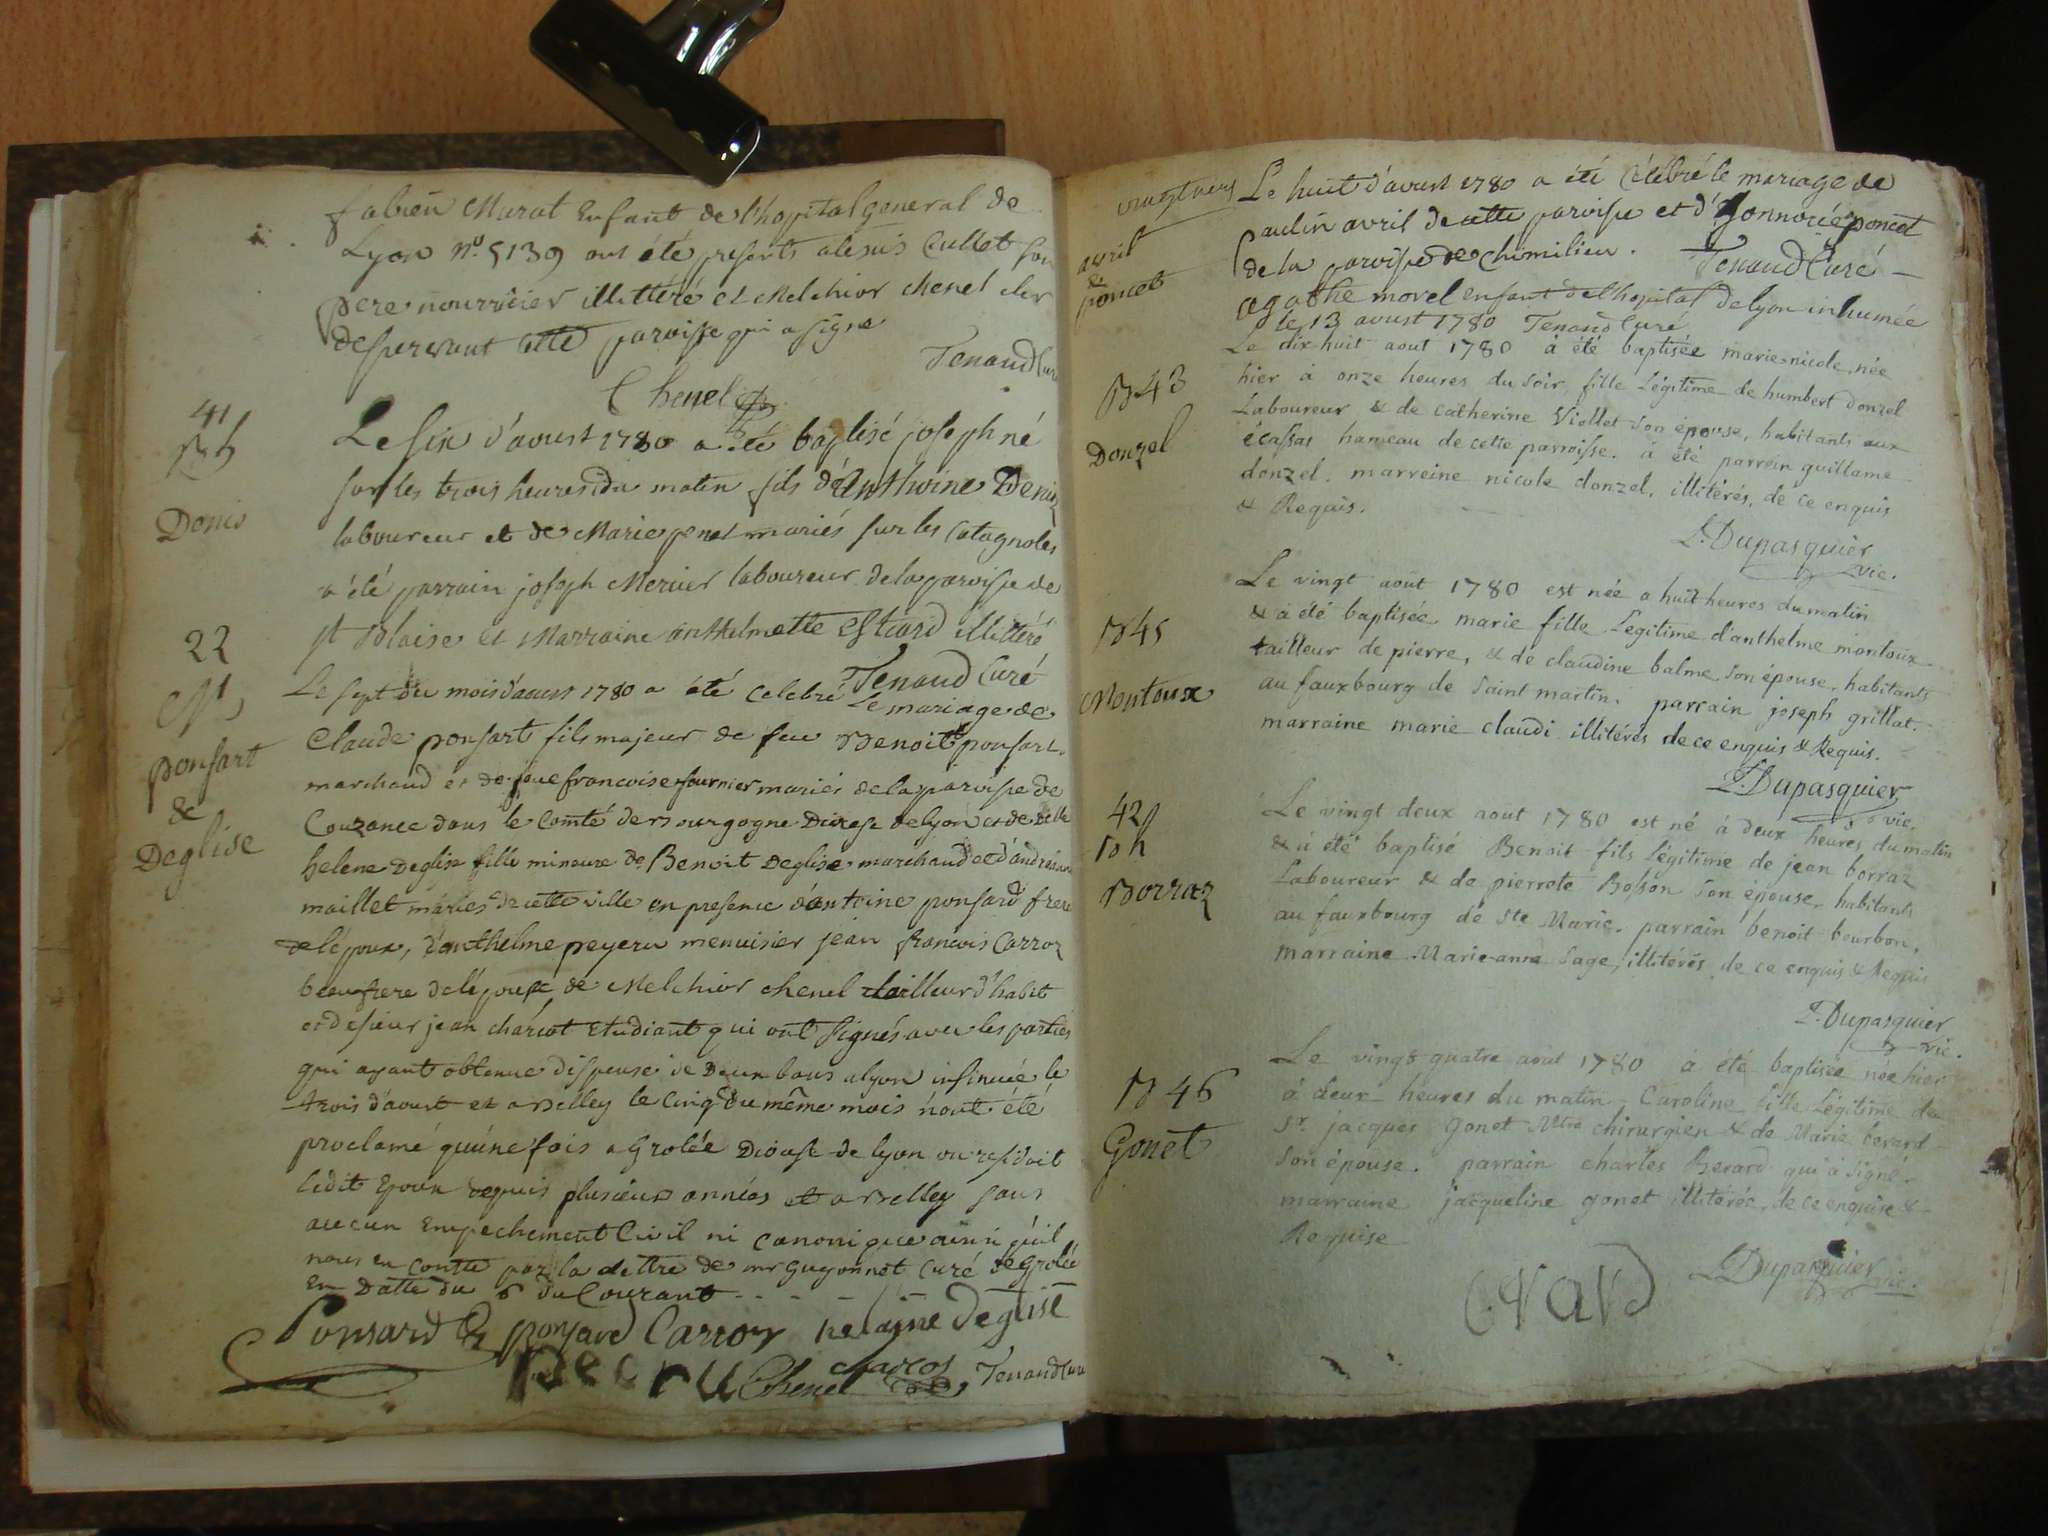 fabien Murat Enfant de l'hopital general de
Lyon n.º 5139 ont été presents alexis Cullet son
pere nourricier illittéré et Melchior chenel cler
desservant cette paroisse qui a signe
Tenaud Curé
Chenel
41
Bh
Denis
Le six d'aoust 1780 a été baptisé joseph né
sur les trois heures du matin fils d'Anthoine Denis
laboureur et de Marie penet mariés sur les Catagnoles
a été parrain joseph Mercier laboureur de la paroisse de
st Blaise et Marraine anthelmette Estard illittéré
Tenaud Curé
22
M
ponsart
&
Deglise
Le sept du mois d'aoust 1780 a été celebré Le mariage de
Claude ponsart fils majeur de feu Benoit ponsart
marchand et de feue francoise fournier mariés de la paroisse de
Couzance dans le Comté de Bourgogne Diocese de lyon et de Delle
helene Deglise fille mineure de Benoit Deglise marchand et d'andréanne
maillet mariés de cette ville en presence d'antoine ponsard frere
de l'epoux, d'anthelme peyeru menuisier jean francois Carroz
beaufrere de l'epouse de Melchior chenel tailleur d'habit
et de sieur jean charcot Etudiant qui ont signés avec les parties
qui ayant obtenue dispense de Deux bans a lyon insinuée le
trois d'aoust et a Belley le cinq du même mois n'ont été
proclamé qu'une fois a Grolée Diocese de lyon ou residoit
ledit Epoux depuis plusieurs années et a Belley sans
aucun Empechement Civil ni canonique ainsi qu'il
nous en Conste par la dettre de mr Guyonnet Curé de Grolée
En Datte du 6 du Courant
Ponsard ponsard Carroz helaine Deglise
pecru Chenel charcot Tenaud Curé
vingt trois
avril
&
poncet
Le huit d'aoust 1780 a été Célébré le mariage de
paulin avril de cette paroisse et d'honnorée poncet
de la paroisse de Chimilieu. Tenaud Curé
agathe morel enfant de l'hopital de lyon inhumée
le 13 aoust 1780 Tenaud Curé
B43
Donzel
Le dix huit aout 1780 à été baptisée marie nicole, née
hier à onze heures du soir fille Légitime de humbert donzel
Laboureur & de catherine Viollet son épouse, habitants aux
écassas hameau de cette parroisse. à été parrein guillame
donzel. marreine nicole donzel, illitérés, de ce enquis
& Requis.
L. Dupasquier
vic.
B45
Montoux
Le vingt aoüt 1780 est née a huit heures du matin
& à été baptisée marie fille Legitime d'anthelme montoux
tailleur de pierre, & de claudine balme son épouse, habitants
au fauxbourg de saint martin. parrain joseph grillat.
marraine marie claudi illitérés de ce enquis & Requis.
L. Dupasquier
vic.
42
Bh
Borraz
Le vingt deux aout 1780 est né à deux heures du matin
& à été baptisé Benoit fils légitime de jean borraz
Laboureur & de pierrote Bosson son épouse, habitants
au fauxbourg de Ste Marie. parrain benoit bourbon,
marraine Marie-anne Sage, illitérés de ce enquis & Requis
L. Dupasquier
vic.
B46
Gonet
Le vingt quatre aout 1780 à été baptisée née hier
à deux heures du matin Caroline fille Légitime de
Sr. jacques Gonet Mtre chirurgien & de Marie berard
son épouse. parrain charles Berard qui à signé.
marraine jacqueline gonet illitérée, de ce enquise &
Requise
L. Dupasquier
vic.